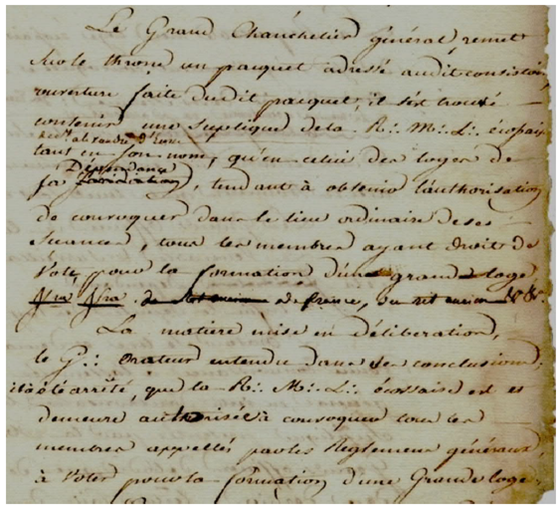 Le Grand Chanchelier général, remet
sur le throne un pacquet adressé audit consistoire,
ouverture faite dudit pacquet, il s'est trouvé
contenir une supplique de la R∴ M∴ L∴ écossaise
tant en son nom, qu'en celui des loges de
Dépendance
sa fondation, tendant à obtenir l'authorisation
de convoquer dans le lieu ordinaire de ses
séances, tous les membres ayant droit de
vote pour la formation d'une grande loge
de france, du rit ancien
La matiere mise en déliberation,
le G∴ Orateur entendu dans ses conclusions,
il a été arrêté, que la R∴ M∴ L∴ écossaise est et
demeure authorisée à convoquer tous les
membres appellés par les Reglemens généraux,
à voter pour la formation d'une Grande loge